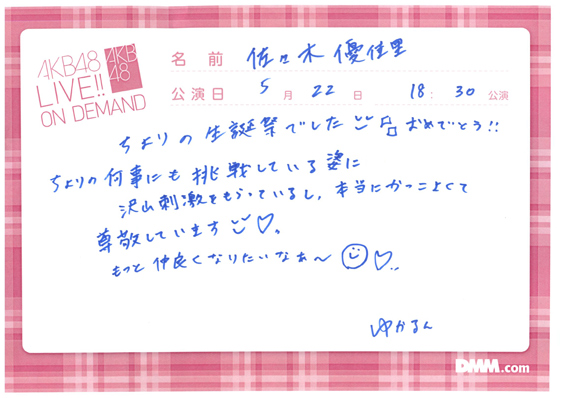 AKB48
LIVE!!
ON DEMAND
AKB
48
名前 佐々木優佳里
公演日 5月22日 18:30公演
ちよりの生誕祭でした おめでとう!!
ちよりの何事にも挑戦している姿に
沢山刺激をもらっているし、本当にかっこよくて
尊敬しています♡。
もっと仲良くなりたいなぁ〜♡..
ゆかるん
DMM.com